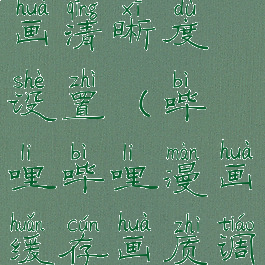 huà qīng xī dù
画清晰度
shè zhì bì
设置（哔
li bì li màn huà
哩哔哩漫画
huǎn cún huà zhì tiáo
缓存画质调